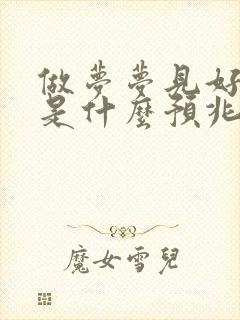 做夢夢見好
是什麼預兆
魔女雪兒